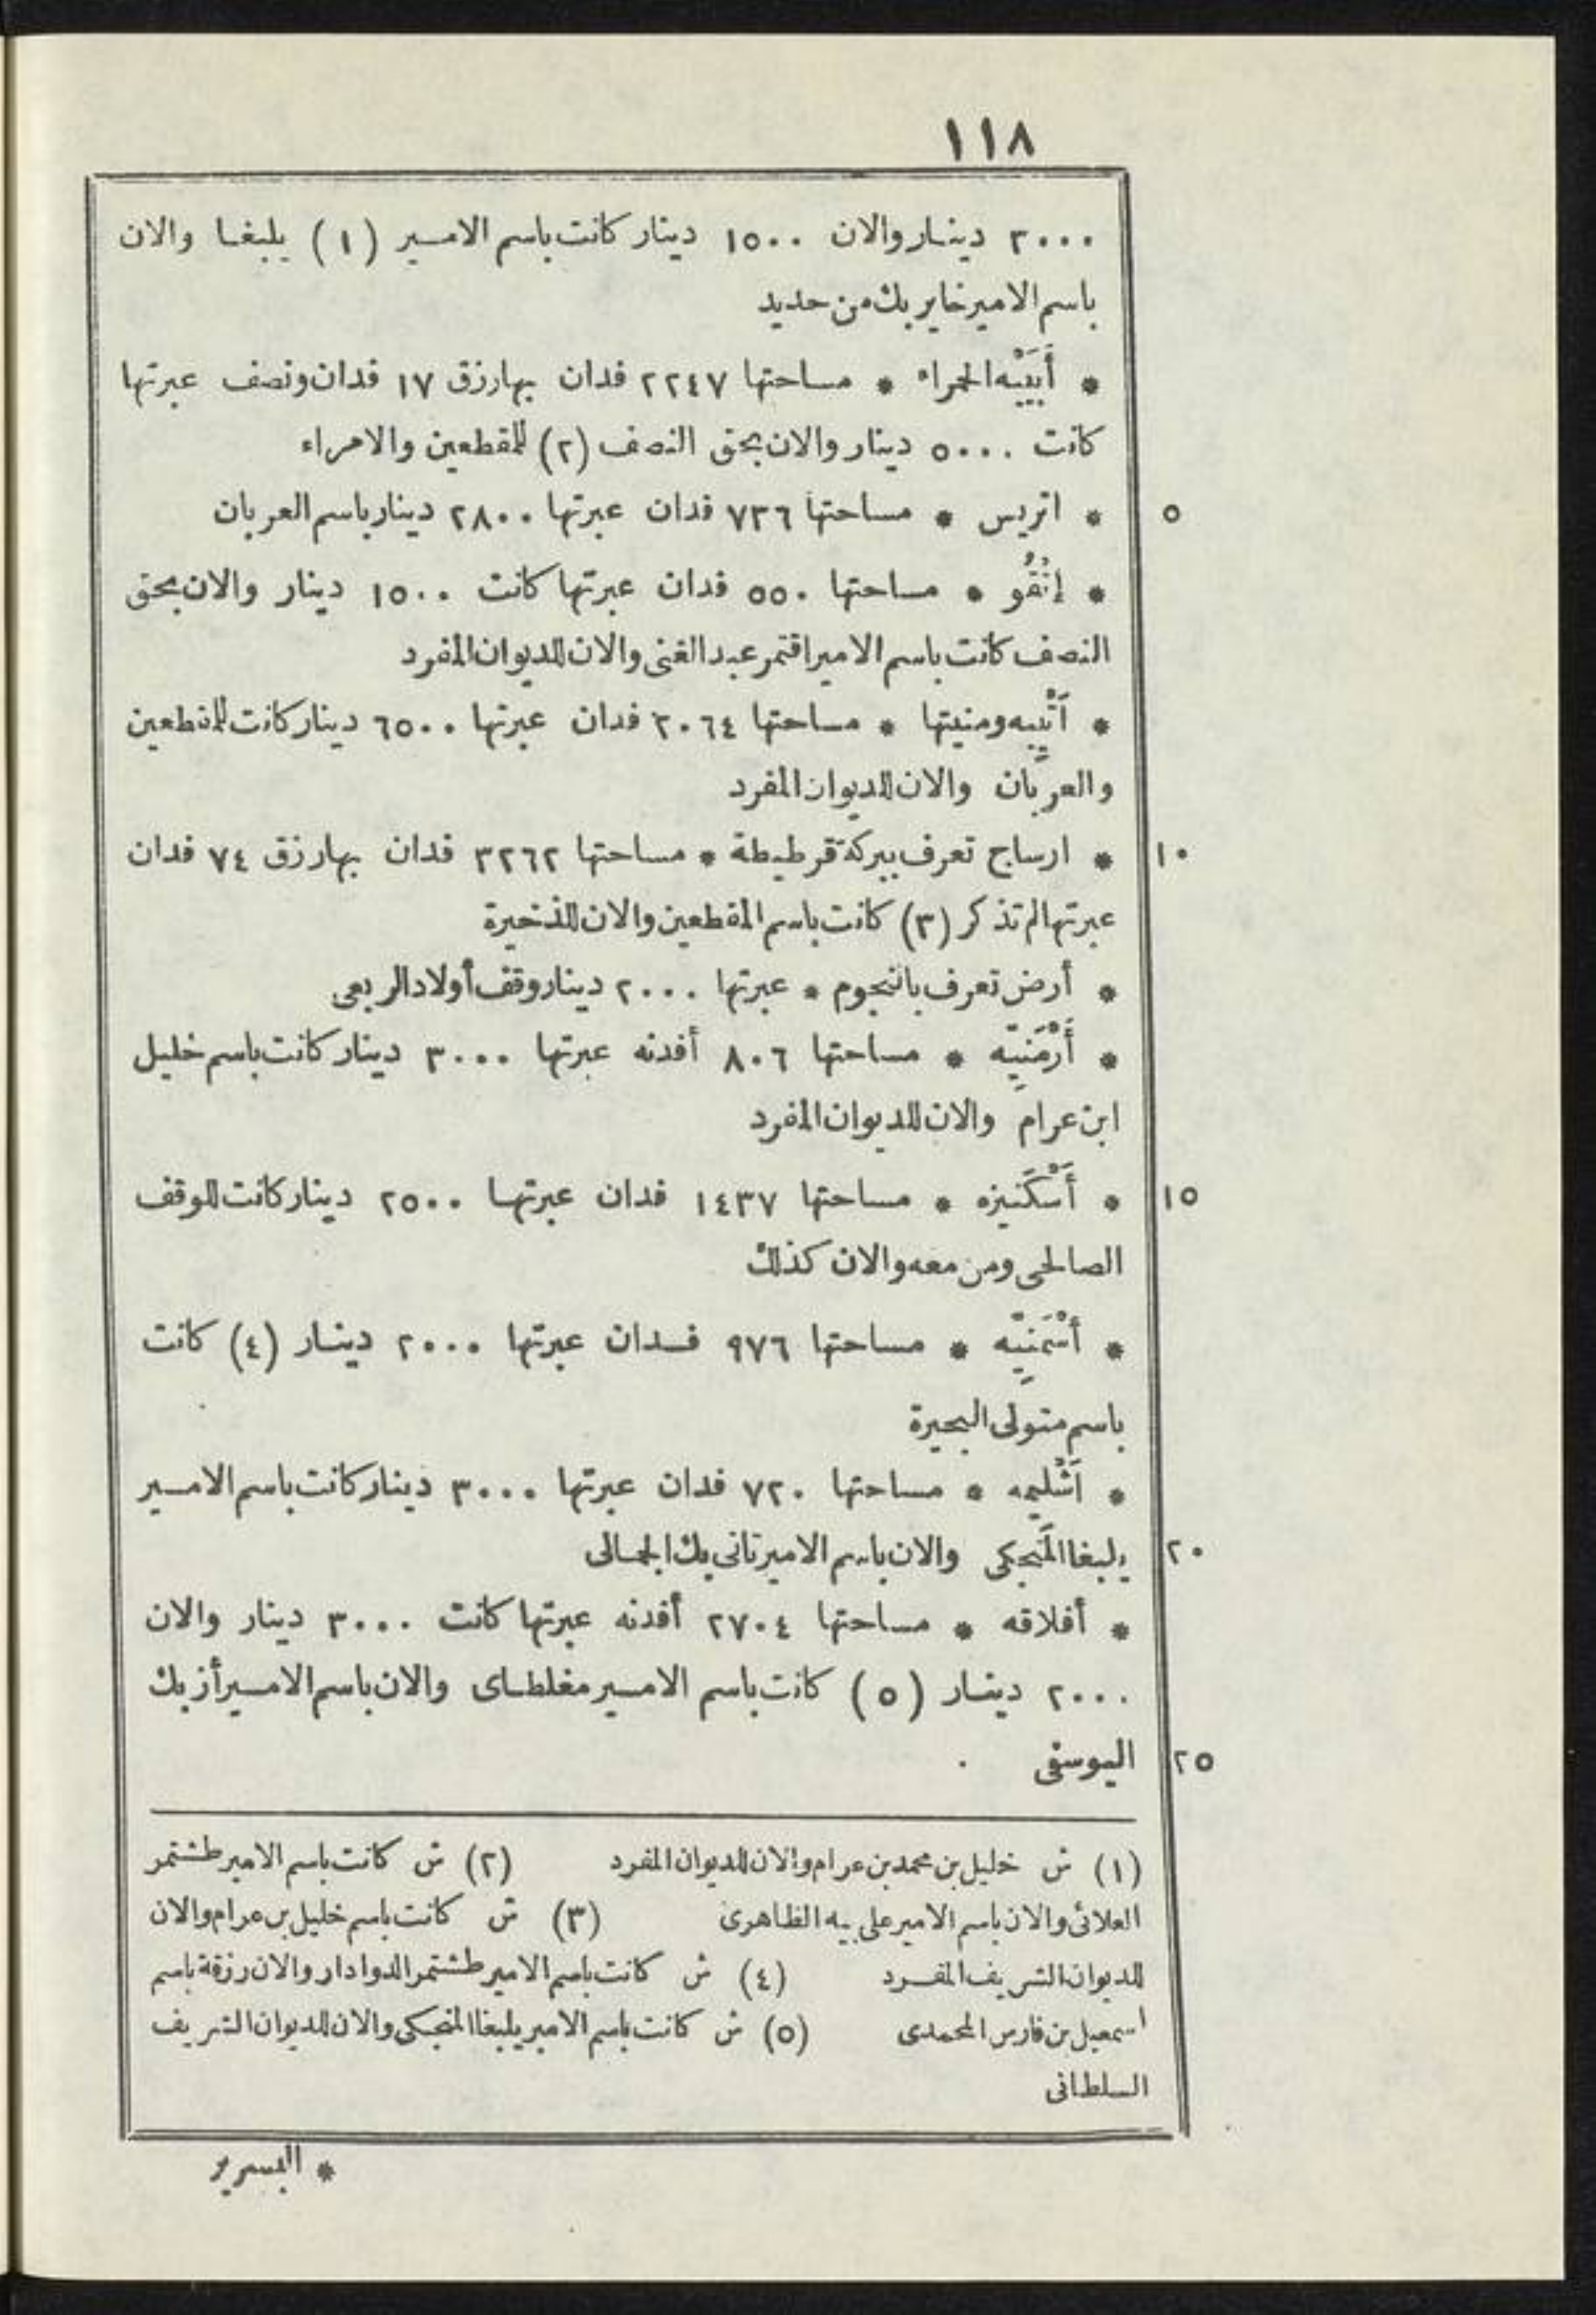 ١١٨
٣٠٠٠ دينار والان ١٥٠٠ دينار كانت باسم الامير (١) يلبغا والان
باسم الامير خاير بك من حديد
* أَبَيْيه الحمراء * مساحتها ٢٢٤٧ فدان بها رزق ١٧ فدان ونصف عبرتها
كانت ٥٠٠٠ دينار والان بحق النصف (٢) للمقطعين والامراء
* اتريس * مساحتها ٧٣٦ فدان عبرتها ٢٨٠٠ دينار باسم العربان ٥
* إنْقُو * مساحتها ٥٥٠ فدان عبرتها كانت ١٥٠٠ دينار والان بحق
النصف كانت باسم الامير اقتمر عبد الغنى والان للديوان المفرد
* أتْيِيه ومنيتها * مساحتها ٢٠٦٤ فدان عبرتها ٦٥٠٠ دينار كانت للمقطعين
والعربان والان للديوان المفرد
* ارساج تعرف ببركة قرطيطة * مساحتها ٣٢٦٢ فدان بها رزق ٧٤ فدان ١٠
عبرتها لم تذكر (٣) كانت باسم المقطعين والان للذخيرة
* أرض تعرف بالنجوم * عبرتها ٢٠٠٠ دينار وقف أولاد الربعى
* أَرْمَنِيّه * مساحتها ٨٠٦ أفدنه عبرتها ٣٠٠٠ دينار كانت باسم خليل
ابن عرام والان للديوان المفرد
* أَسْكَنيزه * مساحتها ١٤٣٧ فدان عبرتها ٢٥٠٠ دينار كانت للوقف ١٥
الصالحى ومن معه والان كذلك
* أشْمَنِيّه * مساحتها ٩٧٦ فدان عبرتها ٢٠٠٠ دينار (٤) كانت
باسم متولى البحيرة
* اَشْليمه * مساحتها ٧٢٠ فدان عبرتها ٣٠٠٠ دينار كانت باسم الامير
يلبغا المَنجكى والان باسم الامير تانى بك الجمالى ٢٠
* أفلاقه * مساحتها ٢٧٠٤ أفدنه عبرتها كانت ٣٠٠٠ دينار والان
٢٠٠٠ دينار (٥) كانت باسم الامير مغلطاى والان باسم الامير أزبك
اليوسفى ٢٥
(١) ش خليل بن محمد بن عرام والان للديوان المفرد (٢) ش كانت باسم الامير طشتمر
العلائى والان باسم الامير على بيه الظاهرى (٣) ش كانت باسم خليل بن عرام والان
للديوان الشريف المفرد (٤) ش كانت باسم الامير طشتمر الدوادار والان رزقة باسم
اسمعيل بن فارس المحمدى (٥) ش كانت باسم الامير يلبغا المنجكى والان للديوان الشريف
السلطانى
* البسرير